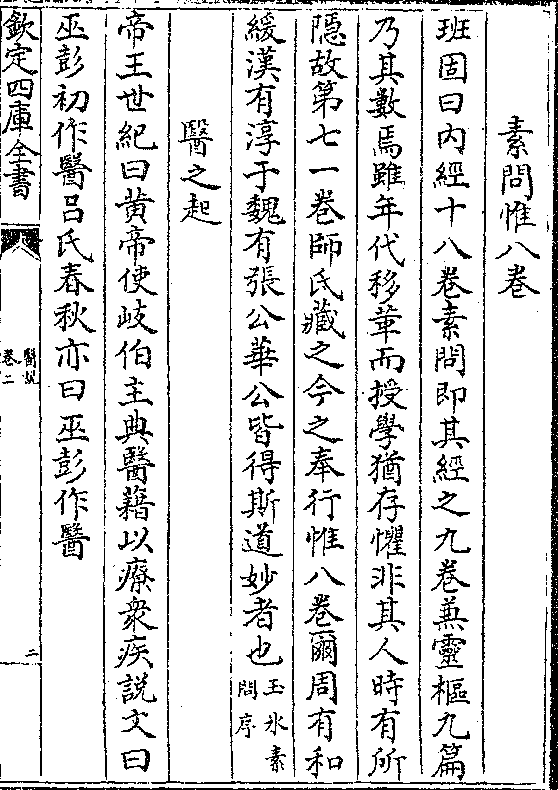 素問惟八卷
班固曰内經十八卷素問即其經之九卷兼靈樞九篇
乃其數焉雖年代移革而授學猶存懼非其人時有所
隠故第七一卷師氏藏之今之奉行惟八卷爾周有和
緩漢有淳于魏有張公華公皆得斯道妙者也玉氷素問序
醫之起
帝王世紀曰黄帝使岐伯主典醫藉以療衆疾説文曰
巫彭初作醫吕氏春秋亦曰巫彭作醫
欽定四庫全書
醫説
卷二
二